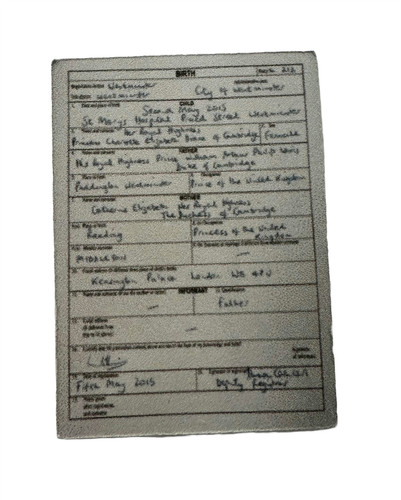 BIRTH Entry No. 212
Registration district Westminster Administrative area
Sub-district Westminster City of Westminster
1. Date and place of birth CHILD
Second May 2015
St Marys Hospital Praed Street Westminster
2. Name and surname Her Royal Highness 3. Sex
Princess Charlotte Elizabeth Diana of Cambridge Female
4. Name and surname FATHER
His Royal Highness Prince William Arthur Philip Louis
Duke of Cambridge
5. Place of birth 6. Occupation
Paddington Westminster Prince of the United Kingdom
7. Name and surname MOTHER
Catherine Elizabeth Her Royal Highness
The Duchess of Cambridge
8. Place of birth 8. Occupation
Reading Princess of the United
Kingdom
Maiden surname
MIDDLETON
10. Usual address (if different from place of child's birth)
Kensington Palace London W8 4PU
11. Name and surname (if not the mother or father) INFORMANT 12. Qualification
— Father
13. Usual address
(if different from
10 above)
—
14. I certify that the particulars entered above are true to the best of my knowledge and belief
Signature
of informant
15. Date of registration 16. Signature of registrar
Fifth May 2015 Deputy Registrar
17. Name given
after registration,
and surname